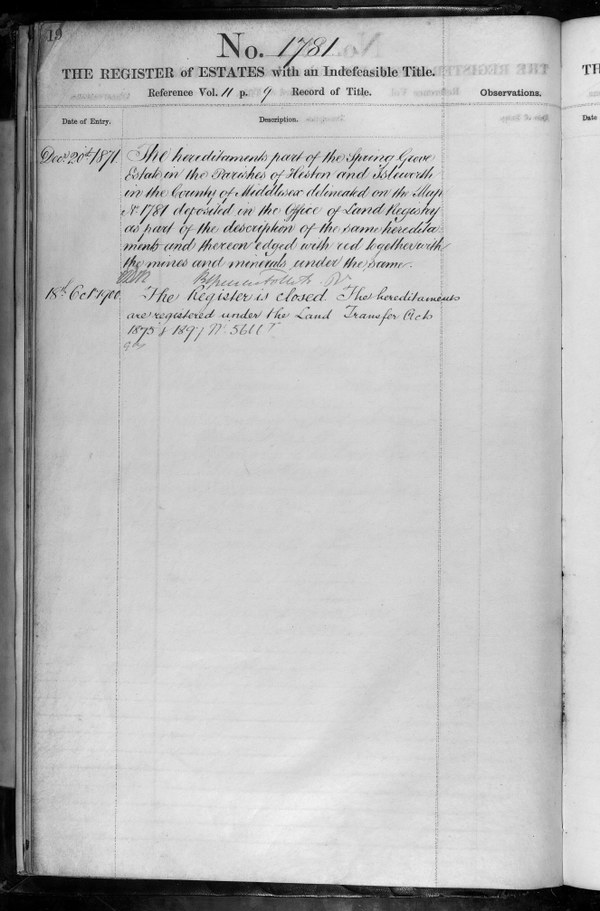 19
No. 1781
THE REGISTER of ESTATES with an Indefeasible Title.
Reference Vol. 11 p. 9 Record of Title.
Observations.
Date of Entry.
Description.
Decr 20th 1871
The hereditaments part of the Spring Grove
Estate in the Parishes of Heston and Isleworth
in the County of Middlesex delineated on the Map
No 1781 deposited in the Office of Land Registry
as part of the description of the same heredita-
ments and thereon edged with red together with
the mines and minerals under the same.
18th Oct 1900
The Register is closed. The hereditaments
are registered under the Land Transfer Acts
1875 & 1897 No. 5611
TH
Date